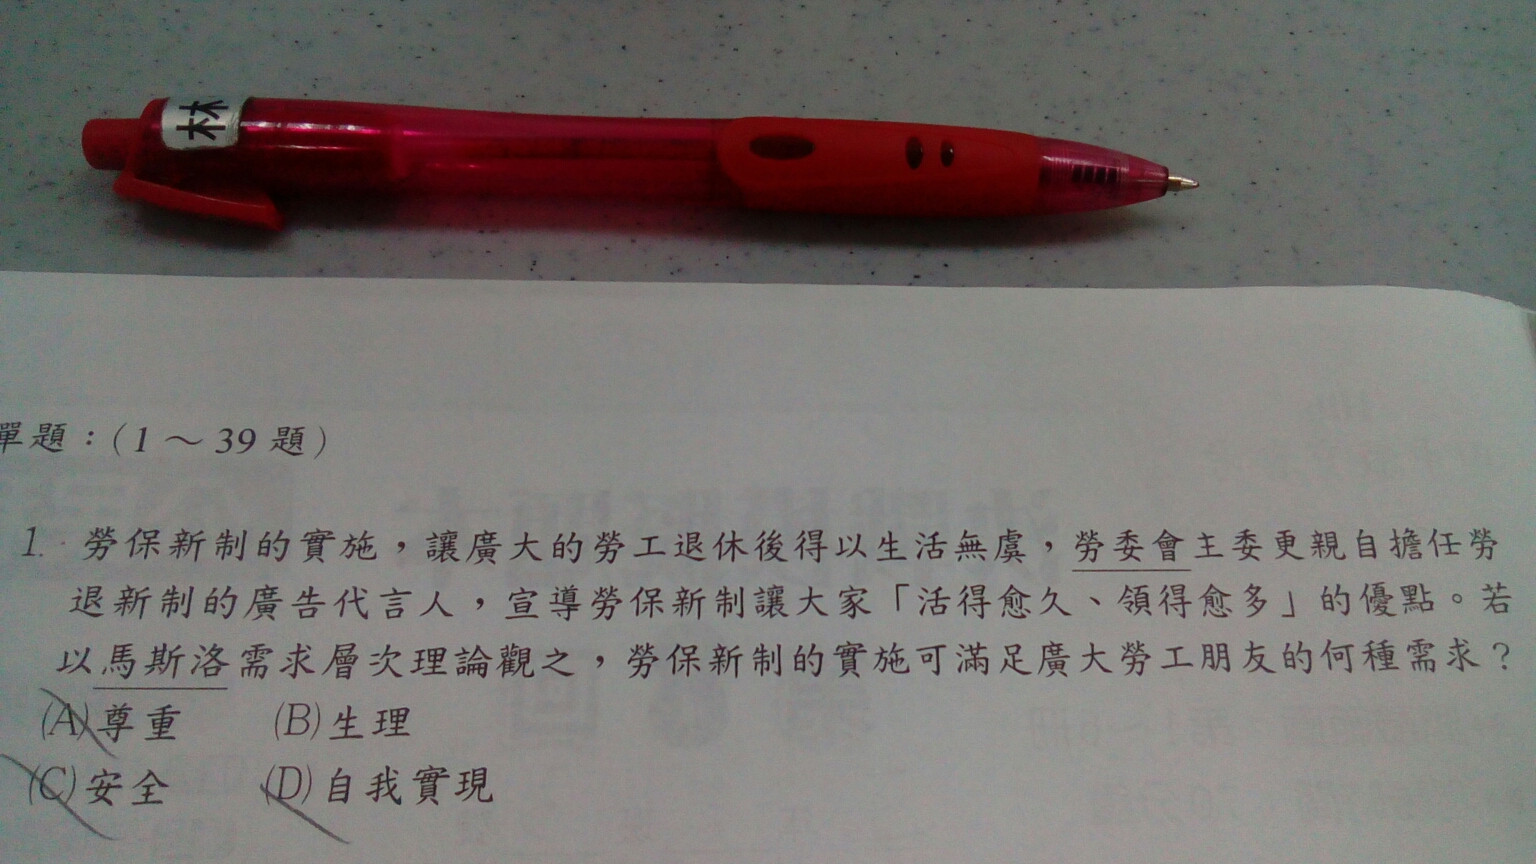 林
單題：(1～39 題)
1. 勞保新制的實施，讓廣大的勞工退休後得以生活無虞，勞委會主委更親自擔任勞
退新制的廣告代言人，宣導勞保新制讓大家「活得愈久、領得愈多」的優點。若
以馬斯洛需求層次理論觀之，勞保新制的實施可滿足廣大勞工朋友的何種需求？
(A)尊重 (B)生理
(C)安全 (D)自我實現